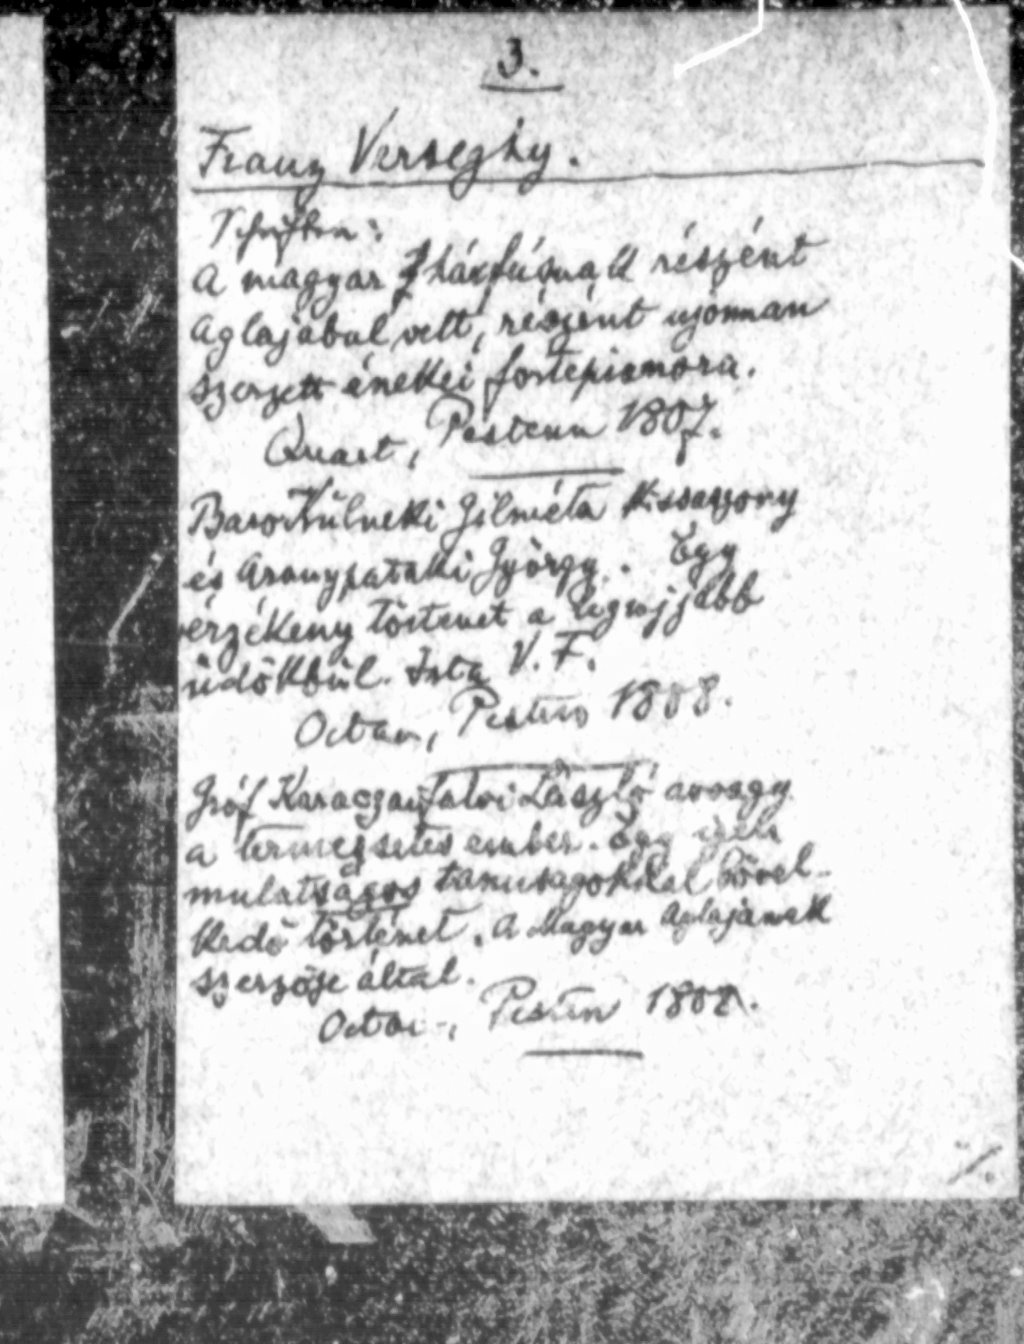 3.
Franz Verseghy.
Schriften:
A magyar hárfásnak részént
Aglajábul vett, részént ujonnan
szerzett énekei fortepianora.
Quart, Pestenn 1807.
Baro Külneki Gilméta kissaszony
és Aranypataki György. Egy
érzékeny törtenet a legujjabb
üdökbül. Irta V. F.
Octav, Pesten 1808.
Gróf Karaczanfalvi László avvagy
a termeszetes ember. Egy igen
mulatságos tanusagokkal bövel-
kedö történet. A Magyar Aglajának
szerzöje által.
Octav, Pesten 1808.